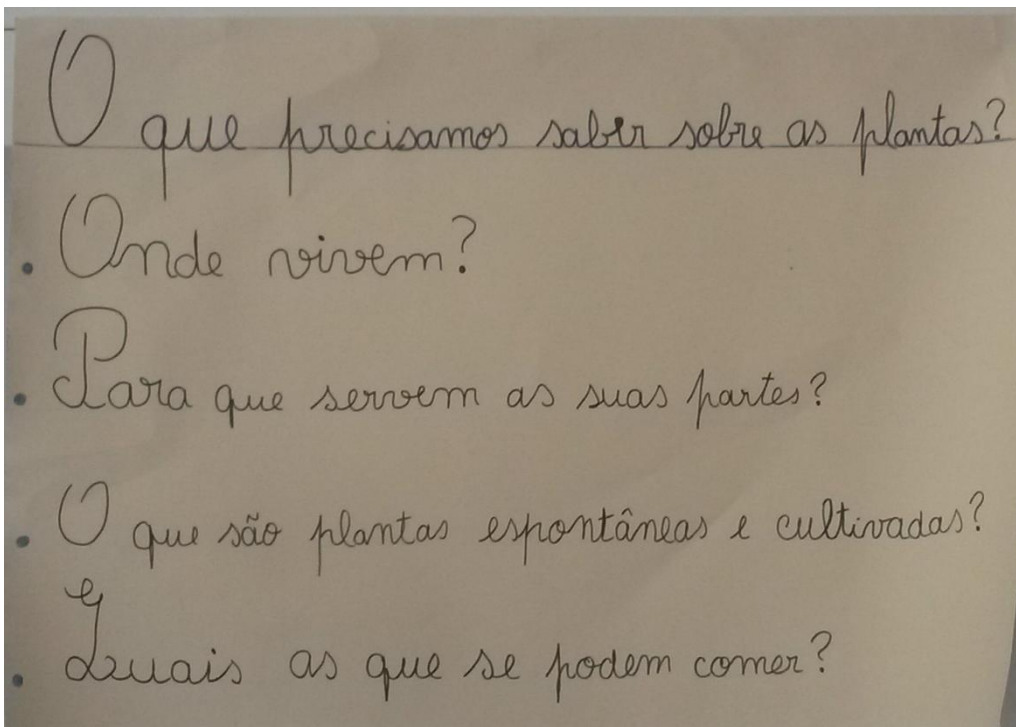 O que precisamos saber sobre as plantas?
. Onde vivem?
. Para que servem as suas partes?
. O que são plantas espontâneas e cultivadas?
. Quais as que se podem comer?